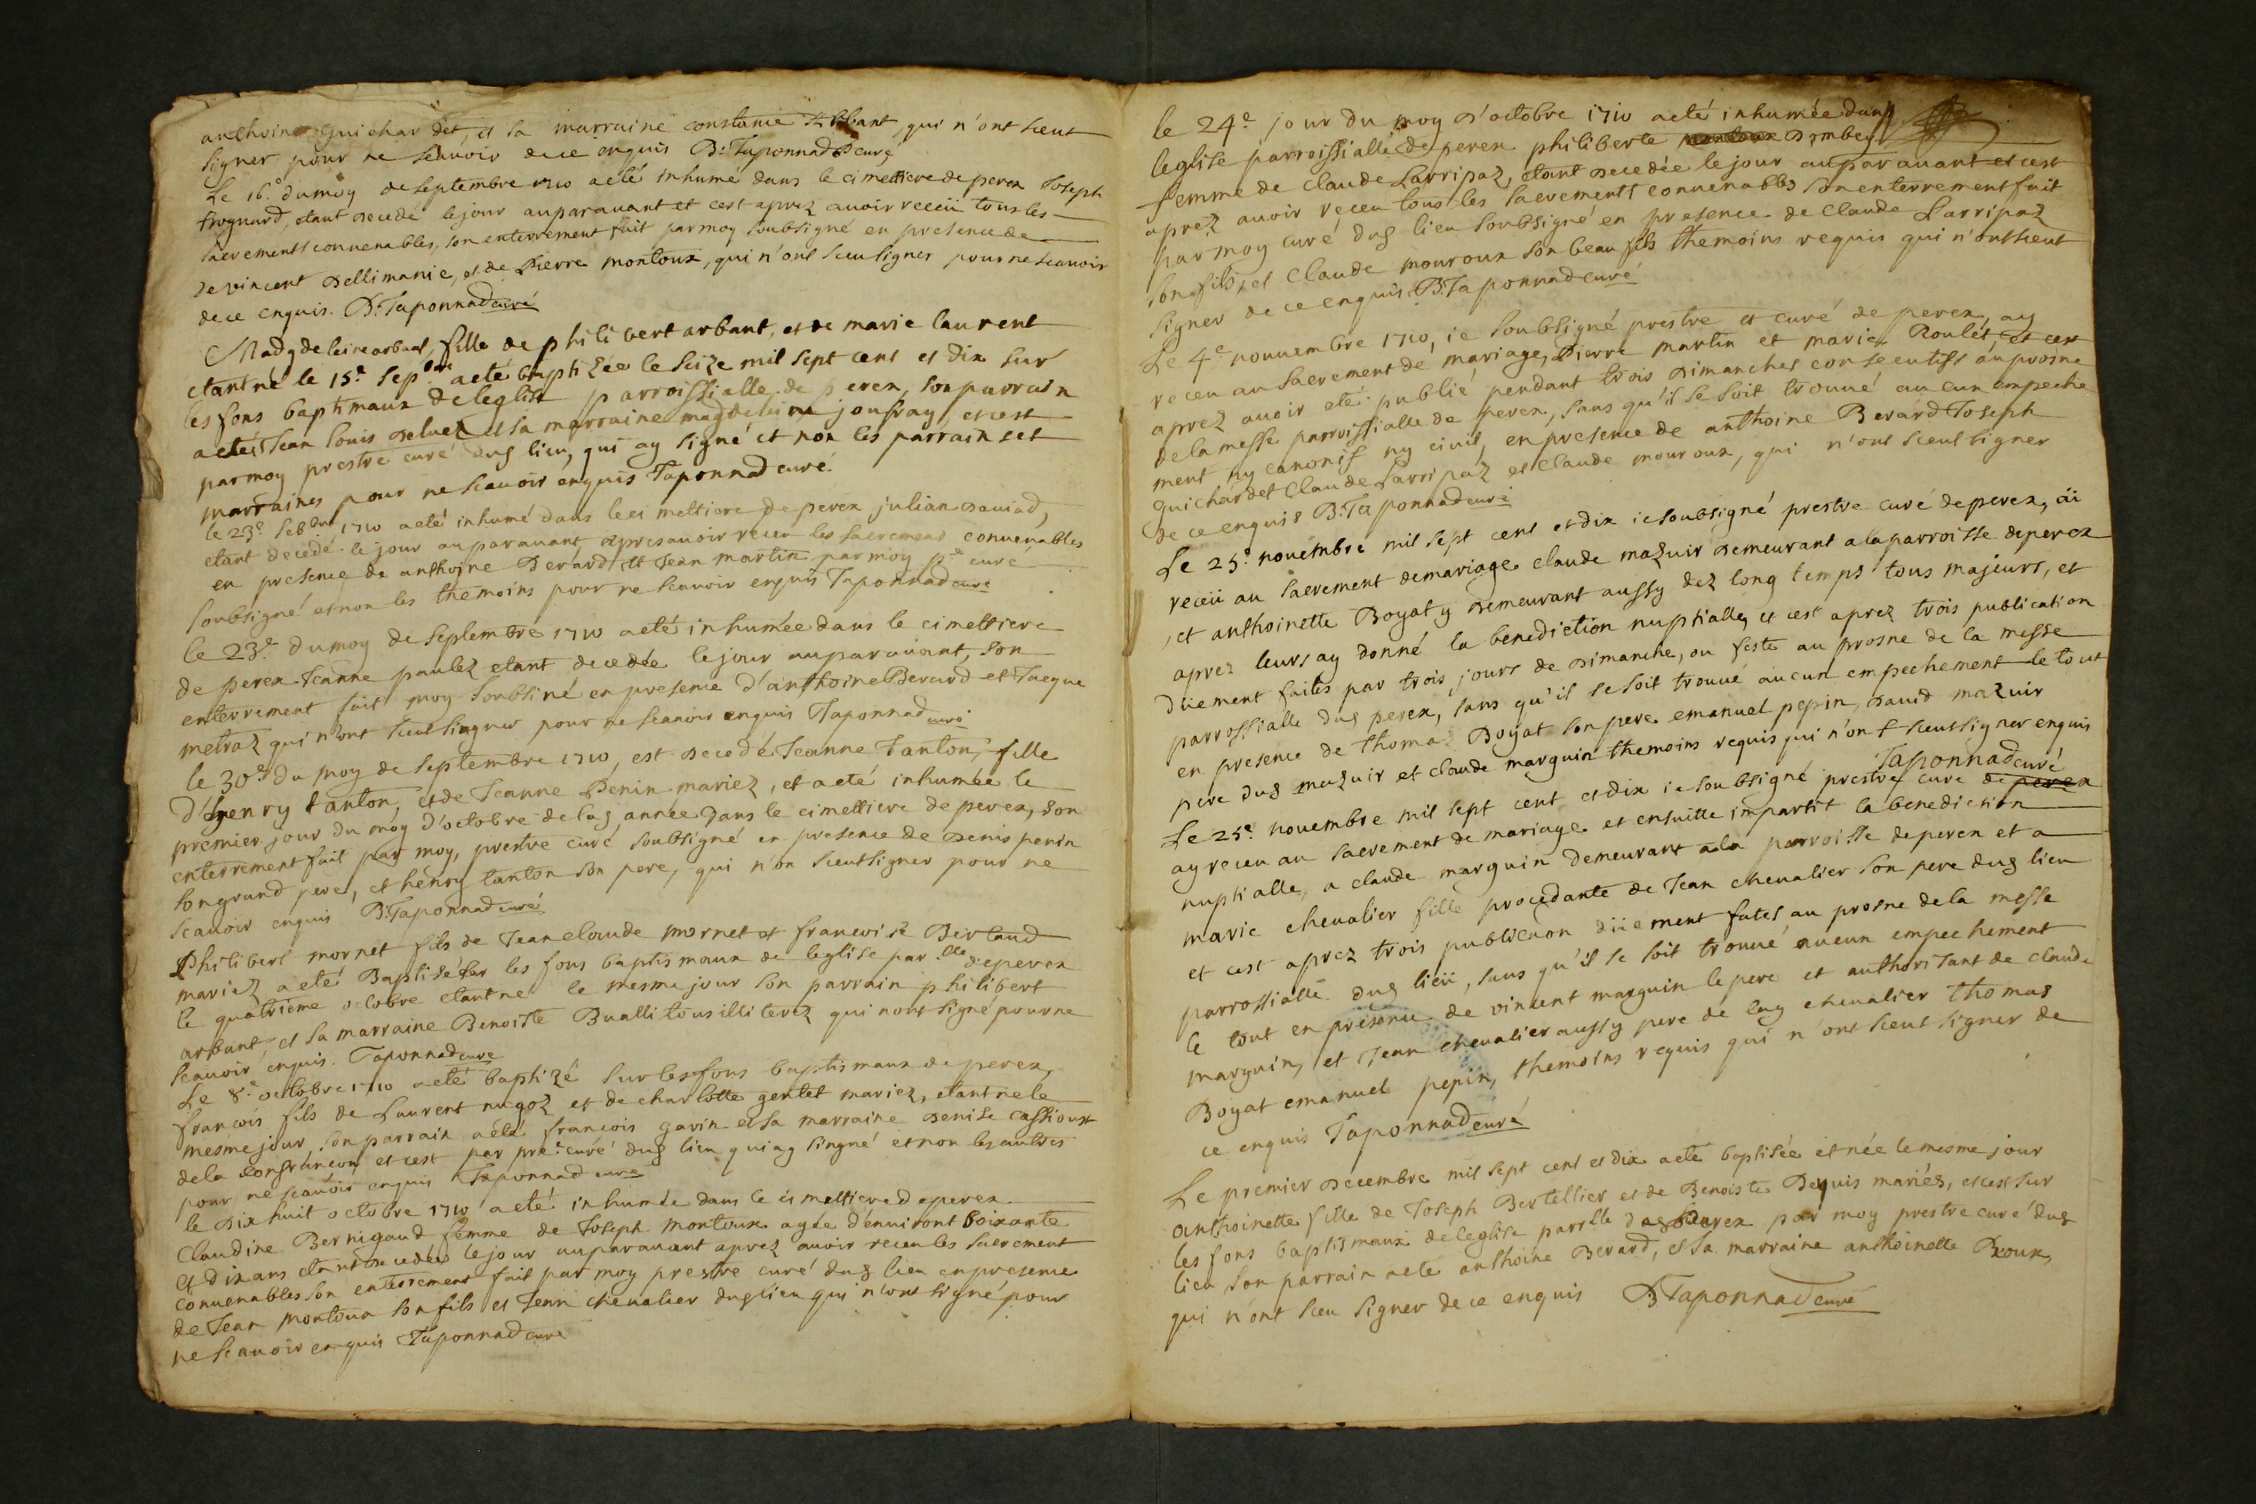 anthoine guichardet, et sa marraine constance arbant, qui n'ont sceut
signer pour ne scauoir de ce enquis B: Taponnad curé
Le 16e du moy de septembre 1710 a eté inhumé dans le cimettiere de perex Joseph
trognard, etant decedé le jour auparauant et cest aprez auoir receü tous les
sacrements conuenables, son enterrement fait par moy soubsigné en presence de
de vincent dellimanie, et de Pierre montoux, qui n'ont sceu signer pour ne scauoir
de ce enquis. B: Taponnad curé
Magdeleine arbant, fille de philibert arbant, et de marie laurent
etant né le 15e sepbre a eté baptizée le seize mil sept cent et dix sur
les fons baptimaux de leglise parroissialle de perex, son parrain
a eté Jean louis deluez et sa marraine magdeleine joufray, et cest
par moy prestre curé dus lieu, qui ay signé et non les parrains et
marraines pour ne scauoir enquis Taponnad curé
le 23e sebbre 1710 a eté inhumé dans le cimettiere de perex julian dauiad,
etant decedé le jour auparauant apres auoir receu les sacremens conuenables
en presence de anthoine Berárd et Jean martin par moy pe curé
soubsigné et non les themoins pour ne scauoir enquis Taponnad curé
le 23e du moy de septembre 1710 a eté inhumée dans le cimettiere
de perex Jeanne paulez etant decedée le jour auparauant, son
enterrement fait moy soubsiné en presence d'anthoine Berard et Jacque
metraz qui n'ont sceut singner pour ne scauoir enquis Taponnad curé
le 30e du moy de septembre 1710, est decedé Jeanne tanton, fille
d'henry tanton, et de Jeanne Penin mariez, et a eté inhumée le
premier jour du moy d'octobre de las année dans le cimettiere de perex, son
enterrement fait par moy, prestre curé soubsigné en presence de denis penin
son grand pere, et henry tanton son pere, qui n'on sceut signer pour ne
scauoir enquis B: Taponnad curé
Philibert mornet fils de Jean claude mornet et francoise Bertaud
mariez a eté Baptisé sur les fons baptismaux de leglise parlle de perex
le quatrieme octobre etant né le mesme jour son parrain philibert
arbant, et sa marraine Benoiste Bualli tous illiterez qui nont signé pour ne
scauoir enquis. Taponnad curé
Le 8e octobre 1710 a eté baptizé sur les fons baptismaux de perex,
francois fils de Laurent nugoz et de charlotte gentet mariez, etant né le
mesme jour son parrain a eté francois gavin et sa marraine denise
de la et cest par pre curé dus lieu qui ay singné et non les aultres
pour ne scauoir enquis Taponnad curé
le dix huit octobre 1710 a eté inhumée dans le cimettiere de perex
Claudine Bernigaud femme de Joseph montoux agée d'enuiront soixante
et dix ans etant decedée le jour auparauant aprez auoir receu les sacrement
conuenables son enterrement fait par moy prestre curé dus lieu en presence
de Jean montoux son fils et Jean chevalier dus lieu qui n'ont signé pour
ne scauoir enquis Taponnad curé
le 24e jour du moy d'octobre 1710 a eté inhumée dans
leglise parroissialle de perex philiberte
femme de Claude Larripaz, etant decedée le jour auparauant et cest
aprez auoir receu tous les sacrements conuenables son enterrement fait
par moy curé dus lieu soubsigné en presence de Claude Larripaz
son fils, et Claude mouroux son beau fils themoins requis qui n'ont sceut
signer de ce enquis. B: Taponnad curé
Le 4e nouuembre 1710, ie soubsigné prestre et curé de perex, ay
receu au sacrement de mariage, Pierre martin et marie Roulet, et cest
aprez auoir eté publié pendant trois dimanches consecutifs au prosne
de la messe parroissialle de perex, sans qu'il se soit trouué aucun empeche
ment ny canonis ny ciuil, en presence de anthoine Berard Joseph
guichardet Claude Larripaz et Claude mouroux, qui n'ont sceut signer
de ce enquis B: Taponnad curé
Le 25e nouembre mil sept cent et dix ie soubsigné prestre curé de perex, äi
receü au sacrement de mariage claude mazuir demeurant a la parroisse de perex
, et anthoinette Boyat y demeurant aussy dez long temps tous majeurs, et
aprez leurs ay donné la benediction nuptialle, et cest aprez trois publication
düement faites par trois jours de dimanche, ou feste au prosne de la messe
parrossialle dus perex, sans qu'il se soit trouué aucun empechement le tout
en presence de thomas Boyat son pere emanuel pepin, dauid mazuir
pere dus mazuir et claude marguin themoins requis qui n'ont sceu signer enquis
Taponnad curé
Le 25e nouembre mil sept cent et dix ie soubsigné prestre curé de perex
ay receu au sacrement de mariage et ensuitte impartit la benediction
nuptialle, a claude marguin demeurant a la parroisse de perex et a
marie chevalier fille procedante de Jean chevalier son pere dus lieu
et cest aprez trois publicaon düement faites au prosne de la messe
parrossialle dus lieü, sans qu'il se soit trouué aucun empechement
le tout en presence de vincent marguin le pere et authorisant de claude
marguin, et Jean chevalier aussy pere de lay chevalier thomas
Boyat emanuel pepin, themoins requis qui n'ont sceut signer de
ce enquis Taponnad curé
Le premier decembre mil sept cent et dix a eté baptisée et née le mesme jour
anthoinette fille de Joseph Bertellier et de Benoiste Dequis mariés, et cest sur
les fons baptismaux de leglise parrlle dus perex par moy prestre curé dus
lieu son parrain a eté anthoine Berard, et sa marraine anthoinette Broux,
qui n'ont sceu signer de ce enquis B Taponnad curé